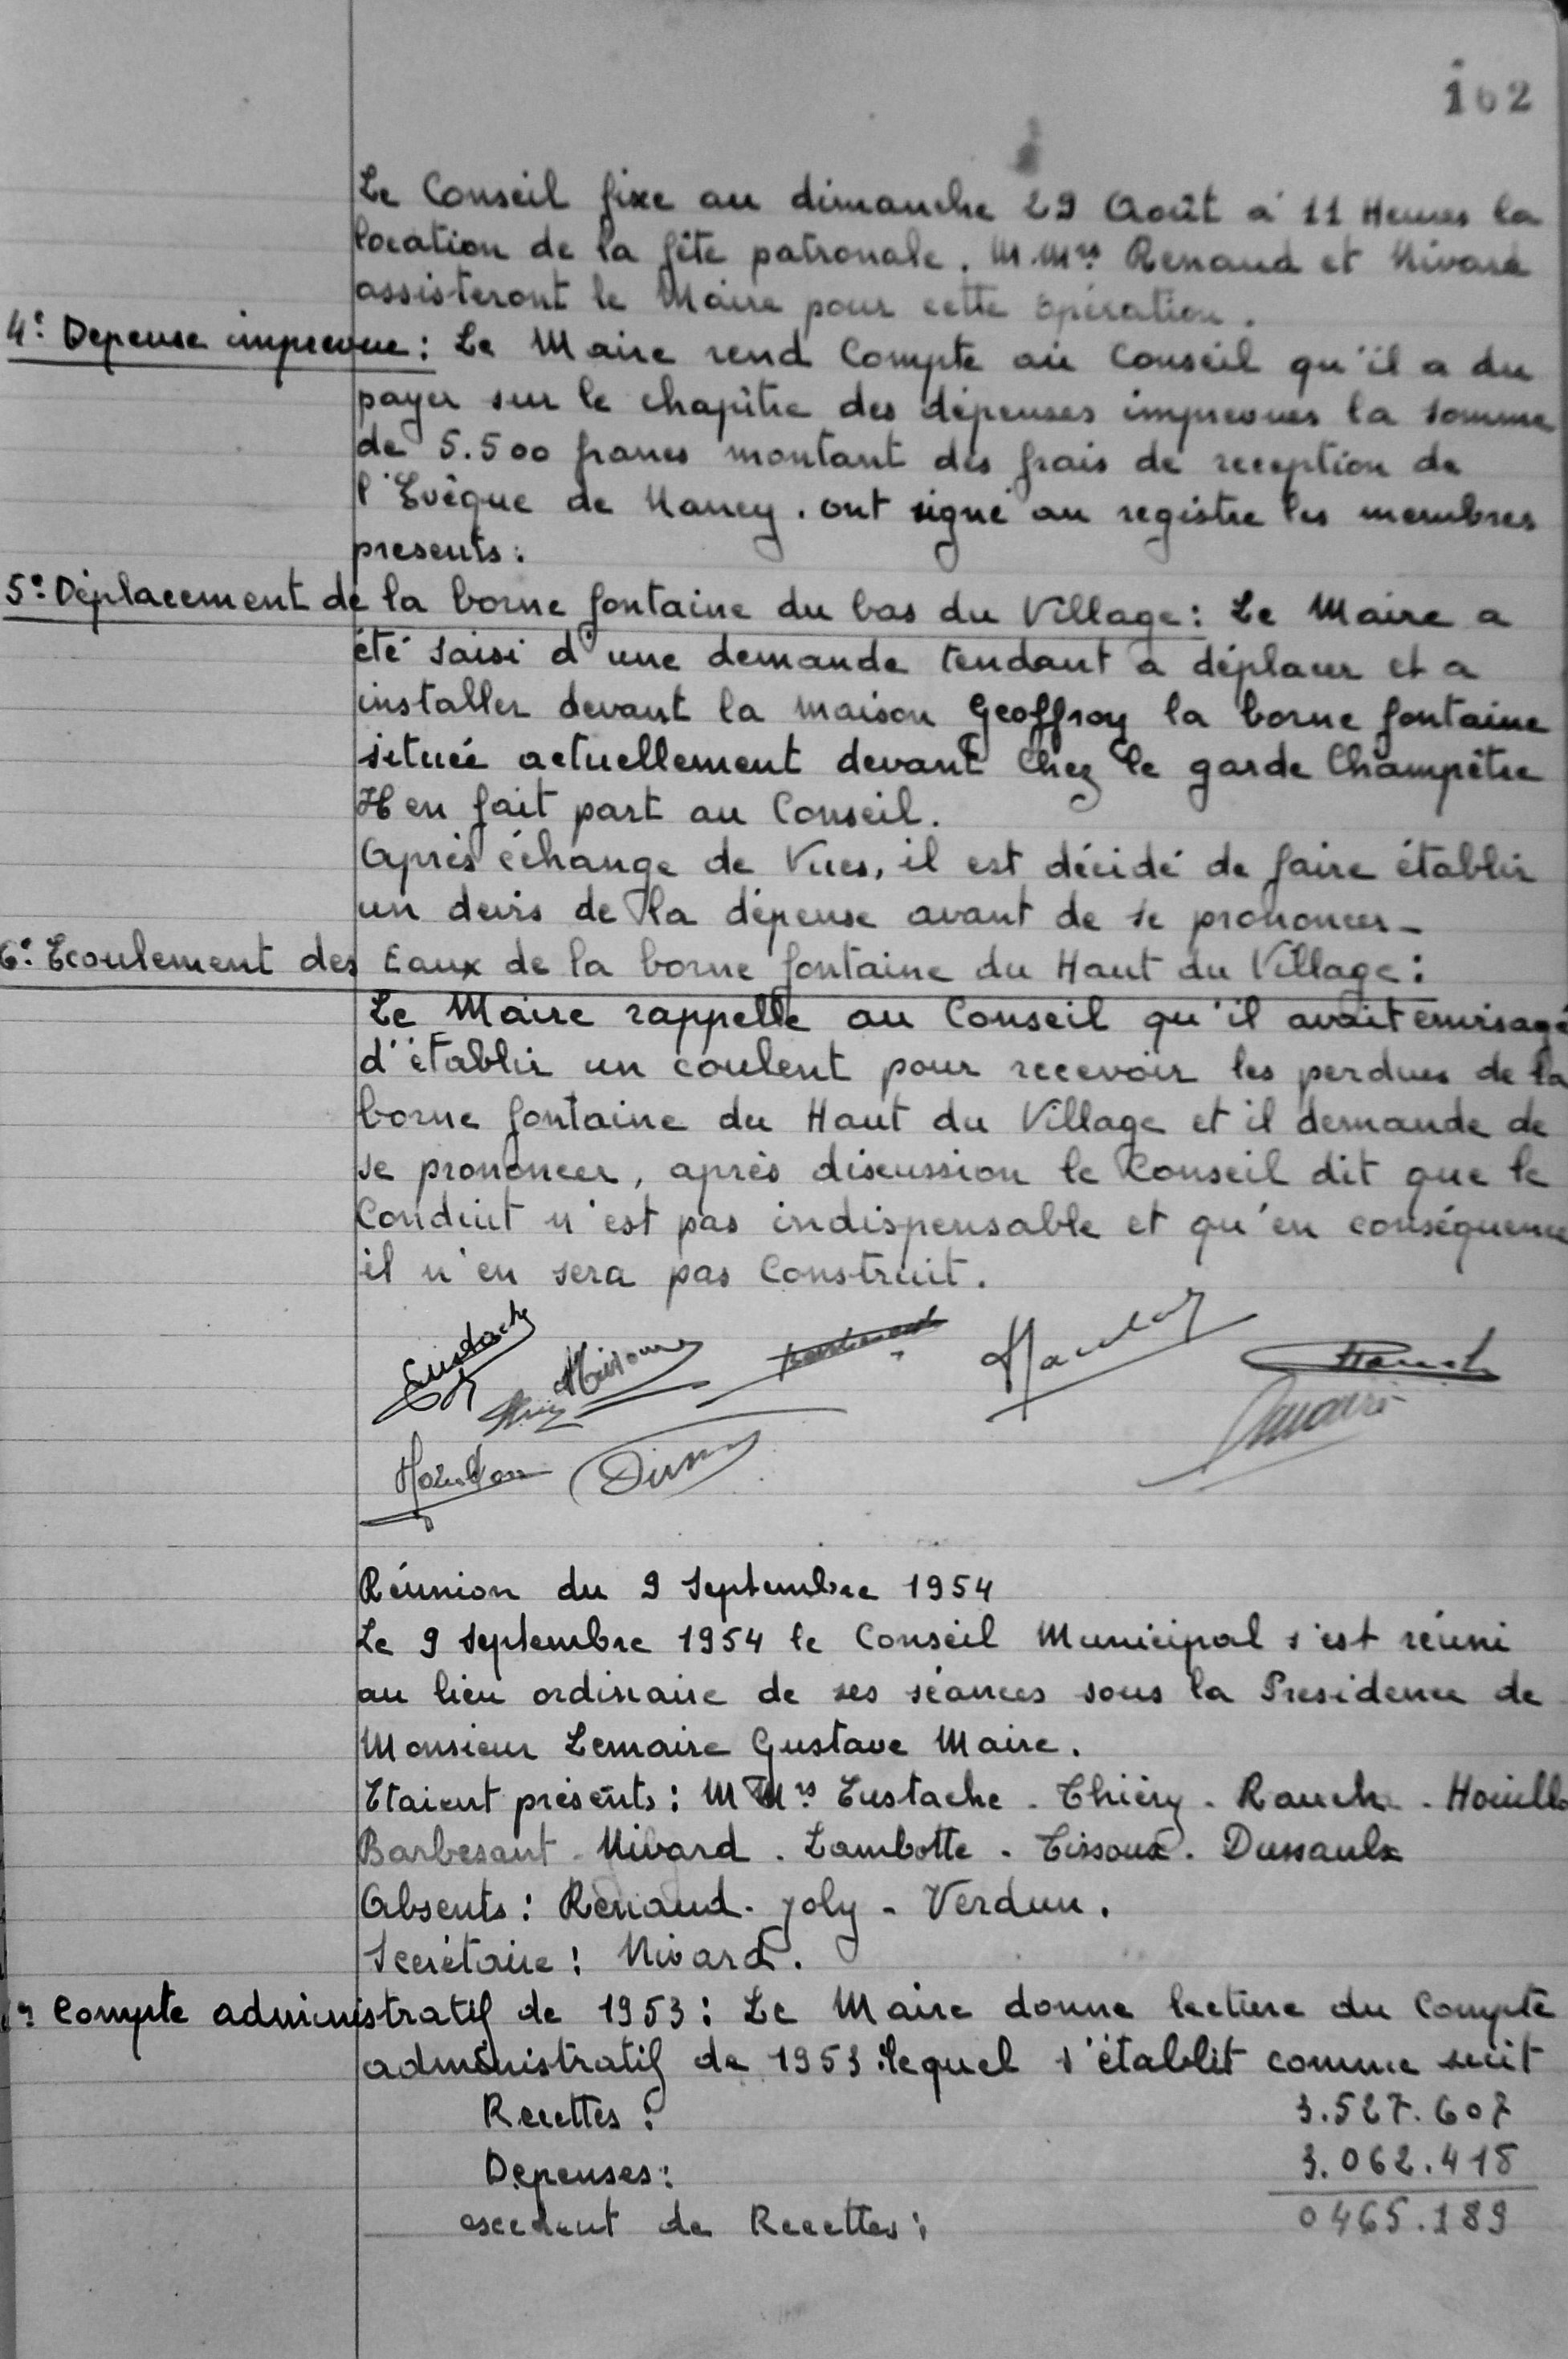 102
Le Conseil fixe au dimanche 29 Août à 11 Heures la
location de la fête patronale. M.Mrs Renaud et Nivard
assisteront le Maire pour cette opération.
4º Depense imprevue : Le Maire rend Compte au Conseil qu'il a du
payer sur le chapître des dépenses imprevues la somme
de 5.500 francs montant des frais de reception de
l'Evêque de Nancy. ont signé au registre les membres
presents :
5º Déplacement de la borne fontaine du bas du Village : Le Maire a
été saisi d'une demande tendant a déplacer et a
installer devant la maison Geoffroy la borne fontaine
située actuellement devant Chez le garde Champêtre
Il en fait part au Conseil.
Après échange de Vues, il est décidé de faire établir
un devis de la dépense avant de se prononcer_
6º Ecoulement des Eaux de la borne fontaine du Haut du Village :
Le Maire rappelle au Conseil qu'il avait envisagé
d'établir un coulent pour recevoir les perdues de la
borne fontaine du Haut du Village et il demande de
se prononcer, après discussion le Conseil dit que le
Conduit n'est pas indispensable et qu'en conséquence
il n'en sera pas Construit.
Eustache
Réunion du 9 Septembre 1954
Le 9 Septembre 1954 le Conseil Municipal s'est réuni
au lieu ordinaire de ses séances sous la Presidence de
Monsieur Lemaire Gustave Maire.
Etaient présents : M Mrs Eustache - Thiéry - Rauch - Houillo
Barbesant - Nivard - Lambotte - Tissoux - Dussaulx
Absents : Renaud - Joly - Verdun.
Secrétaire : Nivard.
Compte administratif de 1953 : Le Maire donne lecture du Compte
administratif de 1953 lequel s'établit comme suit
Recettes : 3.527.607
Depenses : 3.062.418
excedent de Recettes : 0465.189